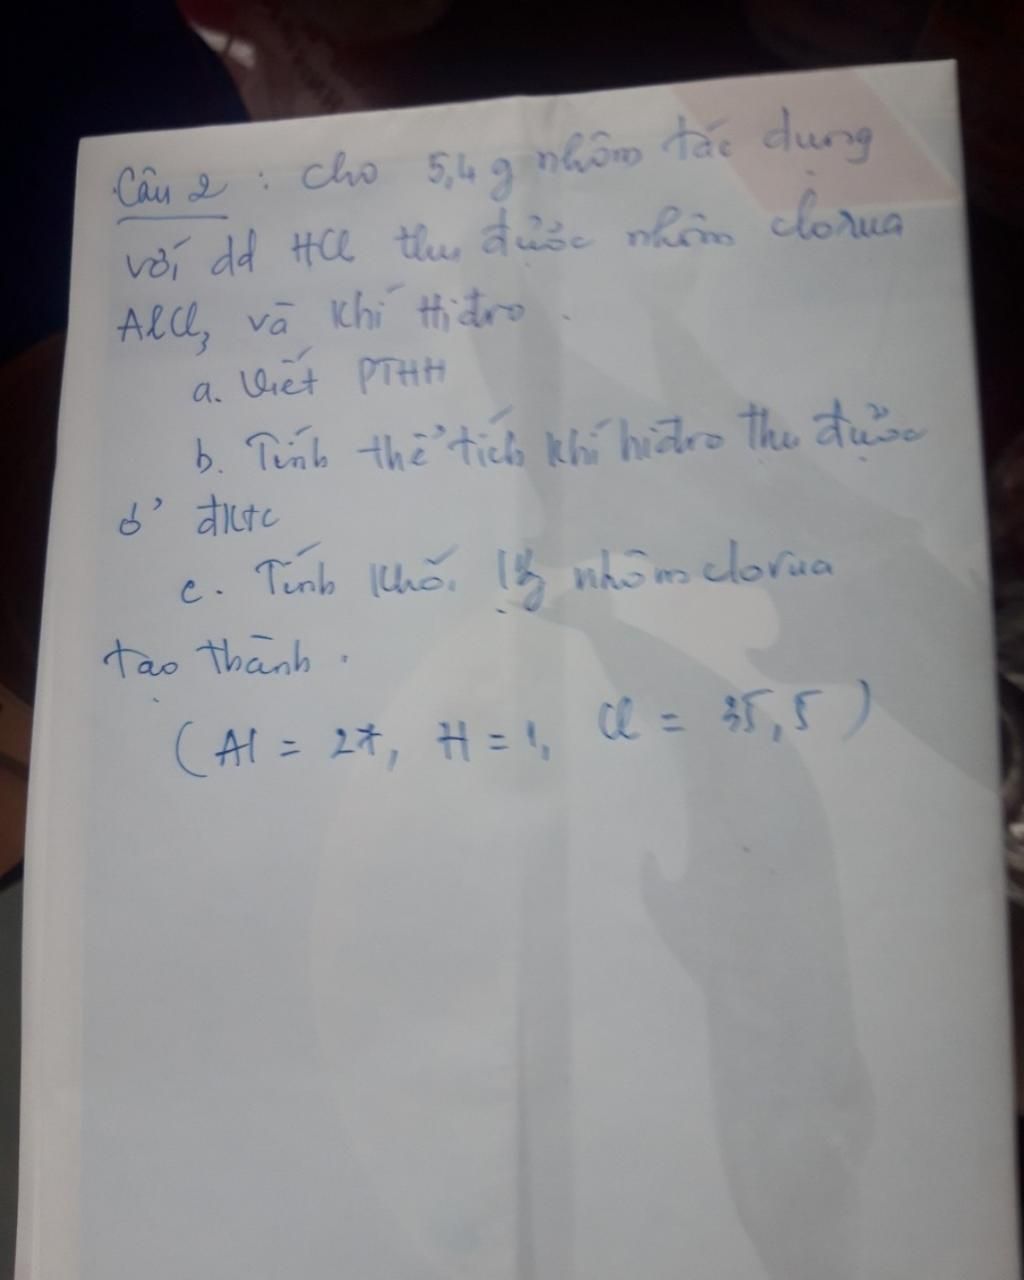 Câu 2 : Cho 5,4 g nhôm tác dụng
với dd HCl thu được nhôm clorua
AlCl3 và khí Hiđro.
a. Viết PTHH
b. Tính thể tích khí hiđro thu được
ở đktc
c. Tính khối lg nhôm clorua
tạo thành.
(Al = 27, H = 1, Cl = 35,5)